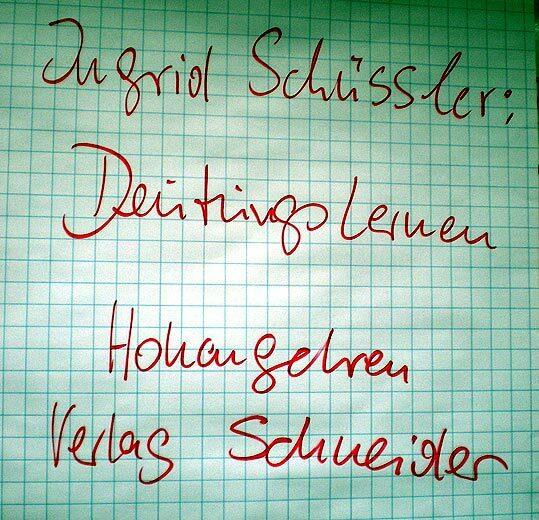 Ingrid Schüssler:
Deutungslernen
Hohengehren
Verlag Schneider